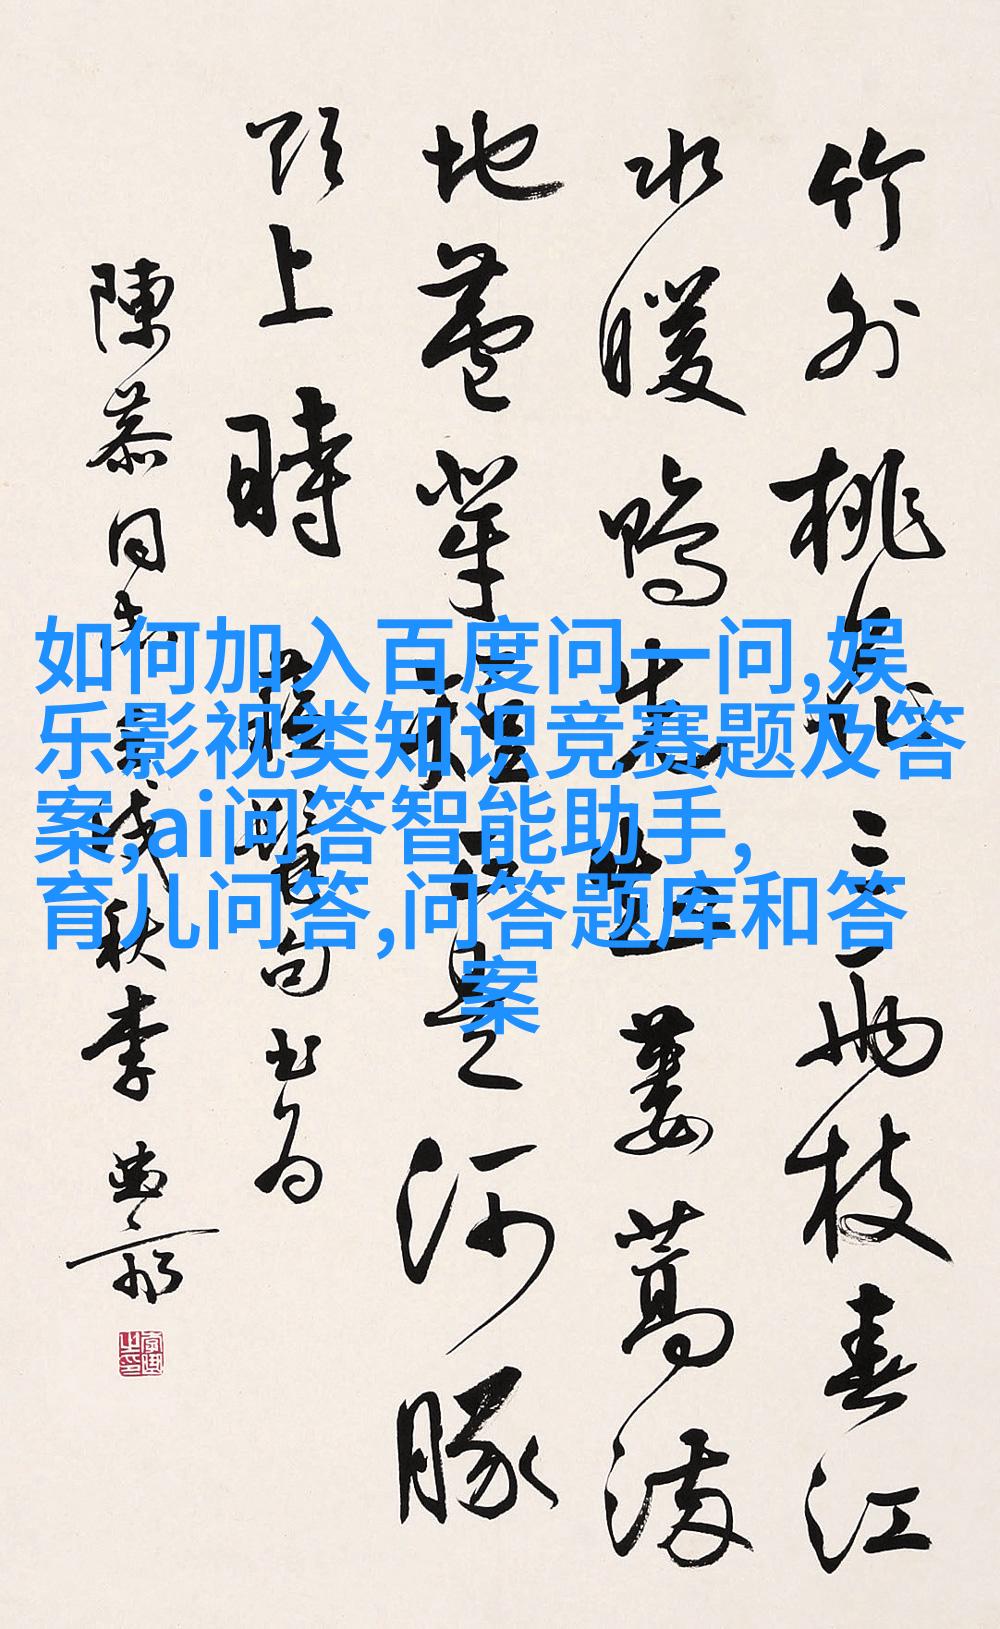 竹外桃花三兩枝春江
水暖鴨先知蔞蒿滿
地蘆芽短正是河豚
欲上時 蘇髯句书为
陳恭同志 戌秋李
如何加入百度问一问,娱
乐影视类知识竞赛题及答
案,ai问答智能助手,
育儿问答,问答题库和答
案